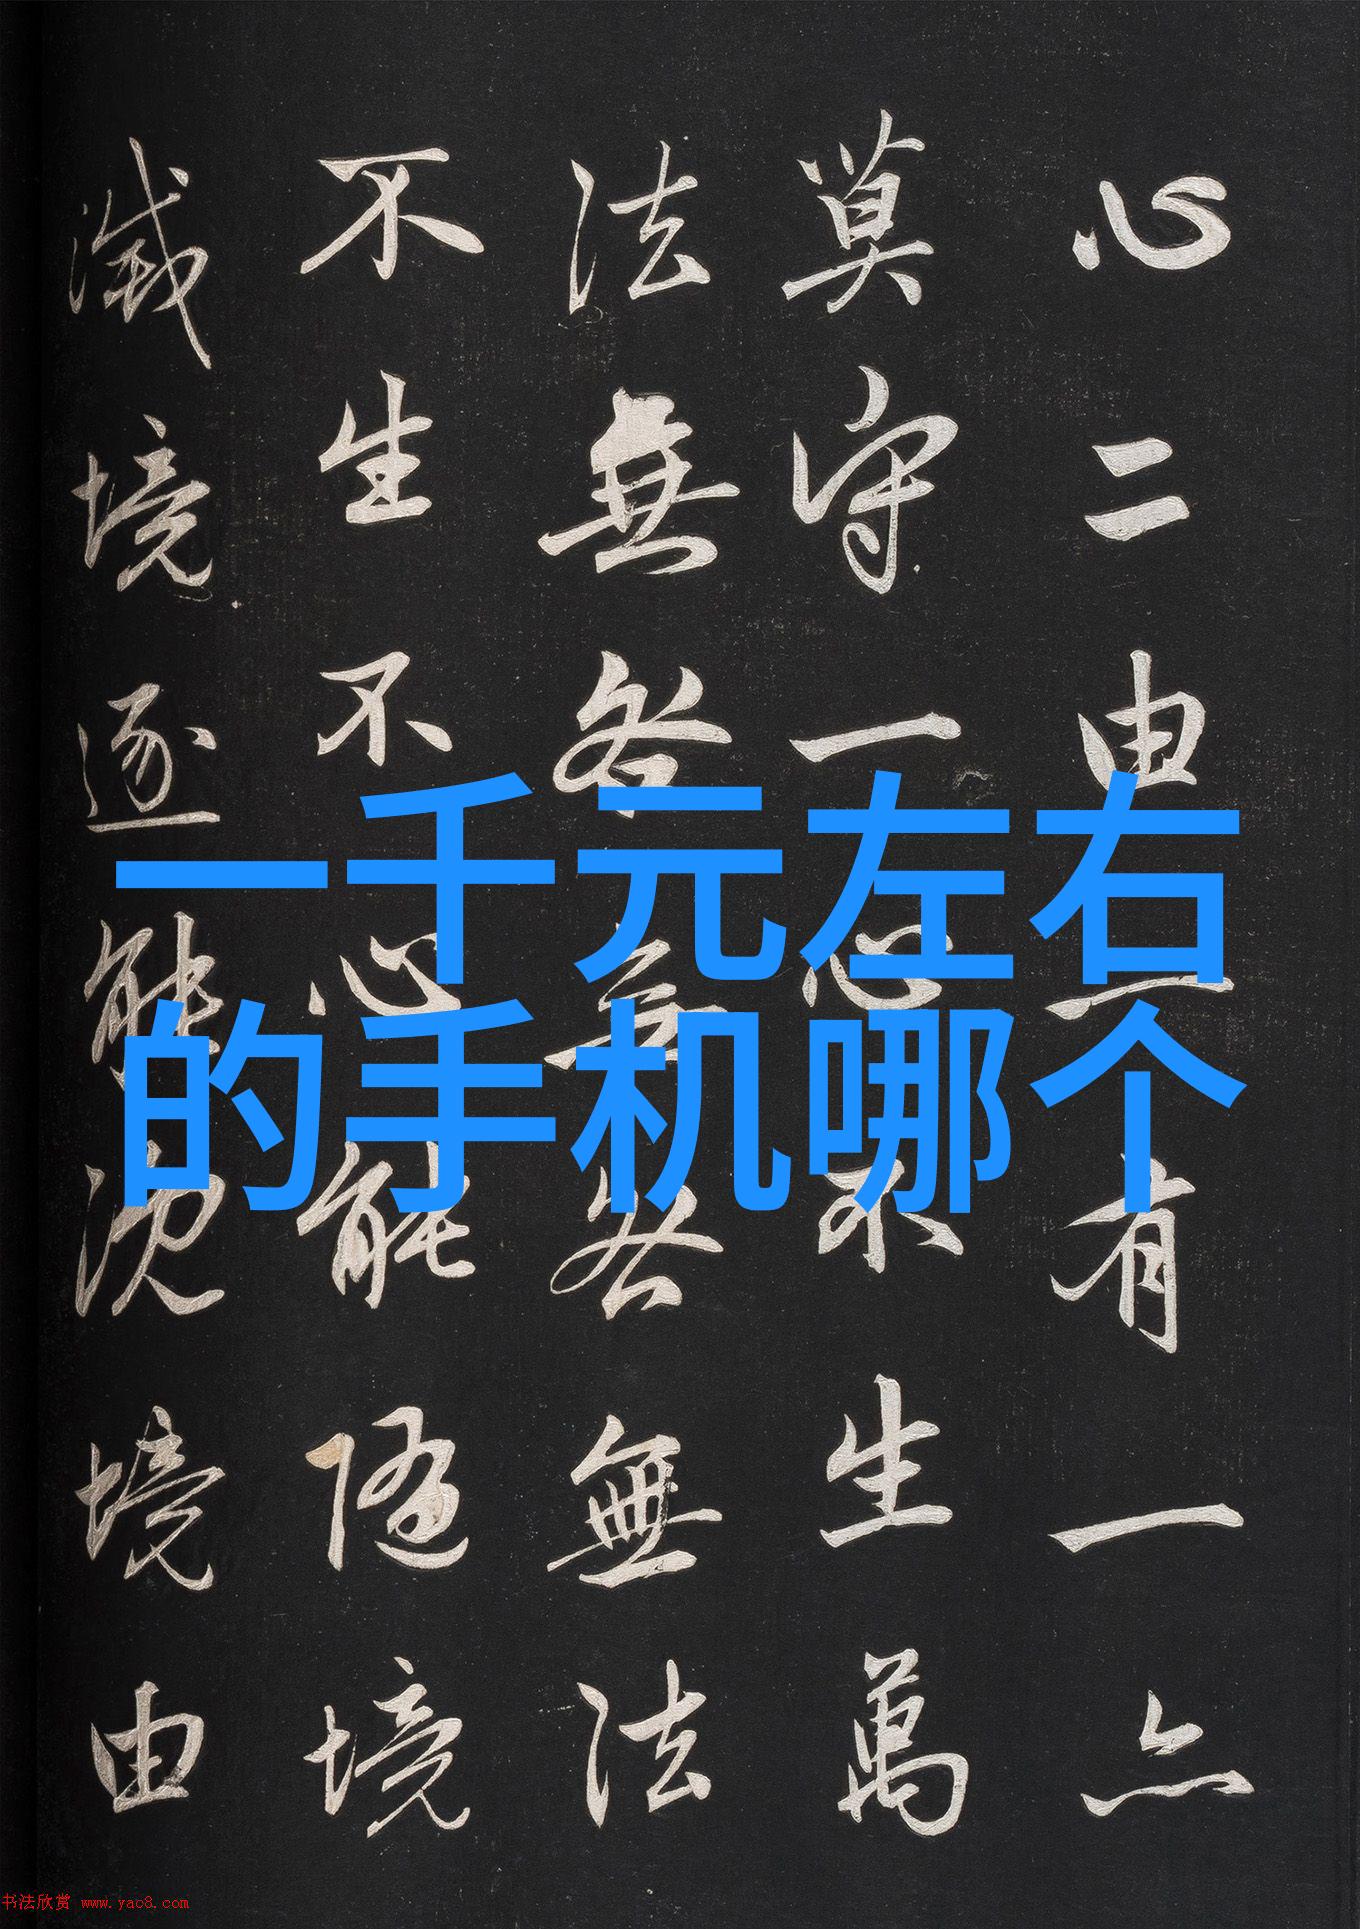 心二由一有一亦
莫守一心不生萬
法無咎無咎無法
不生不心能隨境
滅境逐能沈境由
一千元左右
的手机哪个
书法欣赏 www.yac8.com